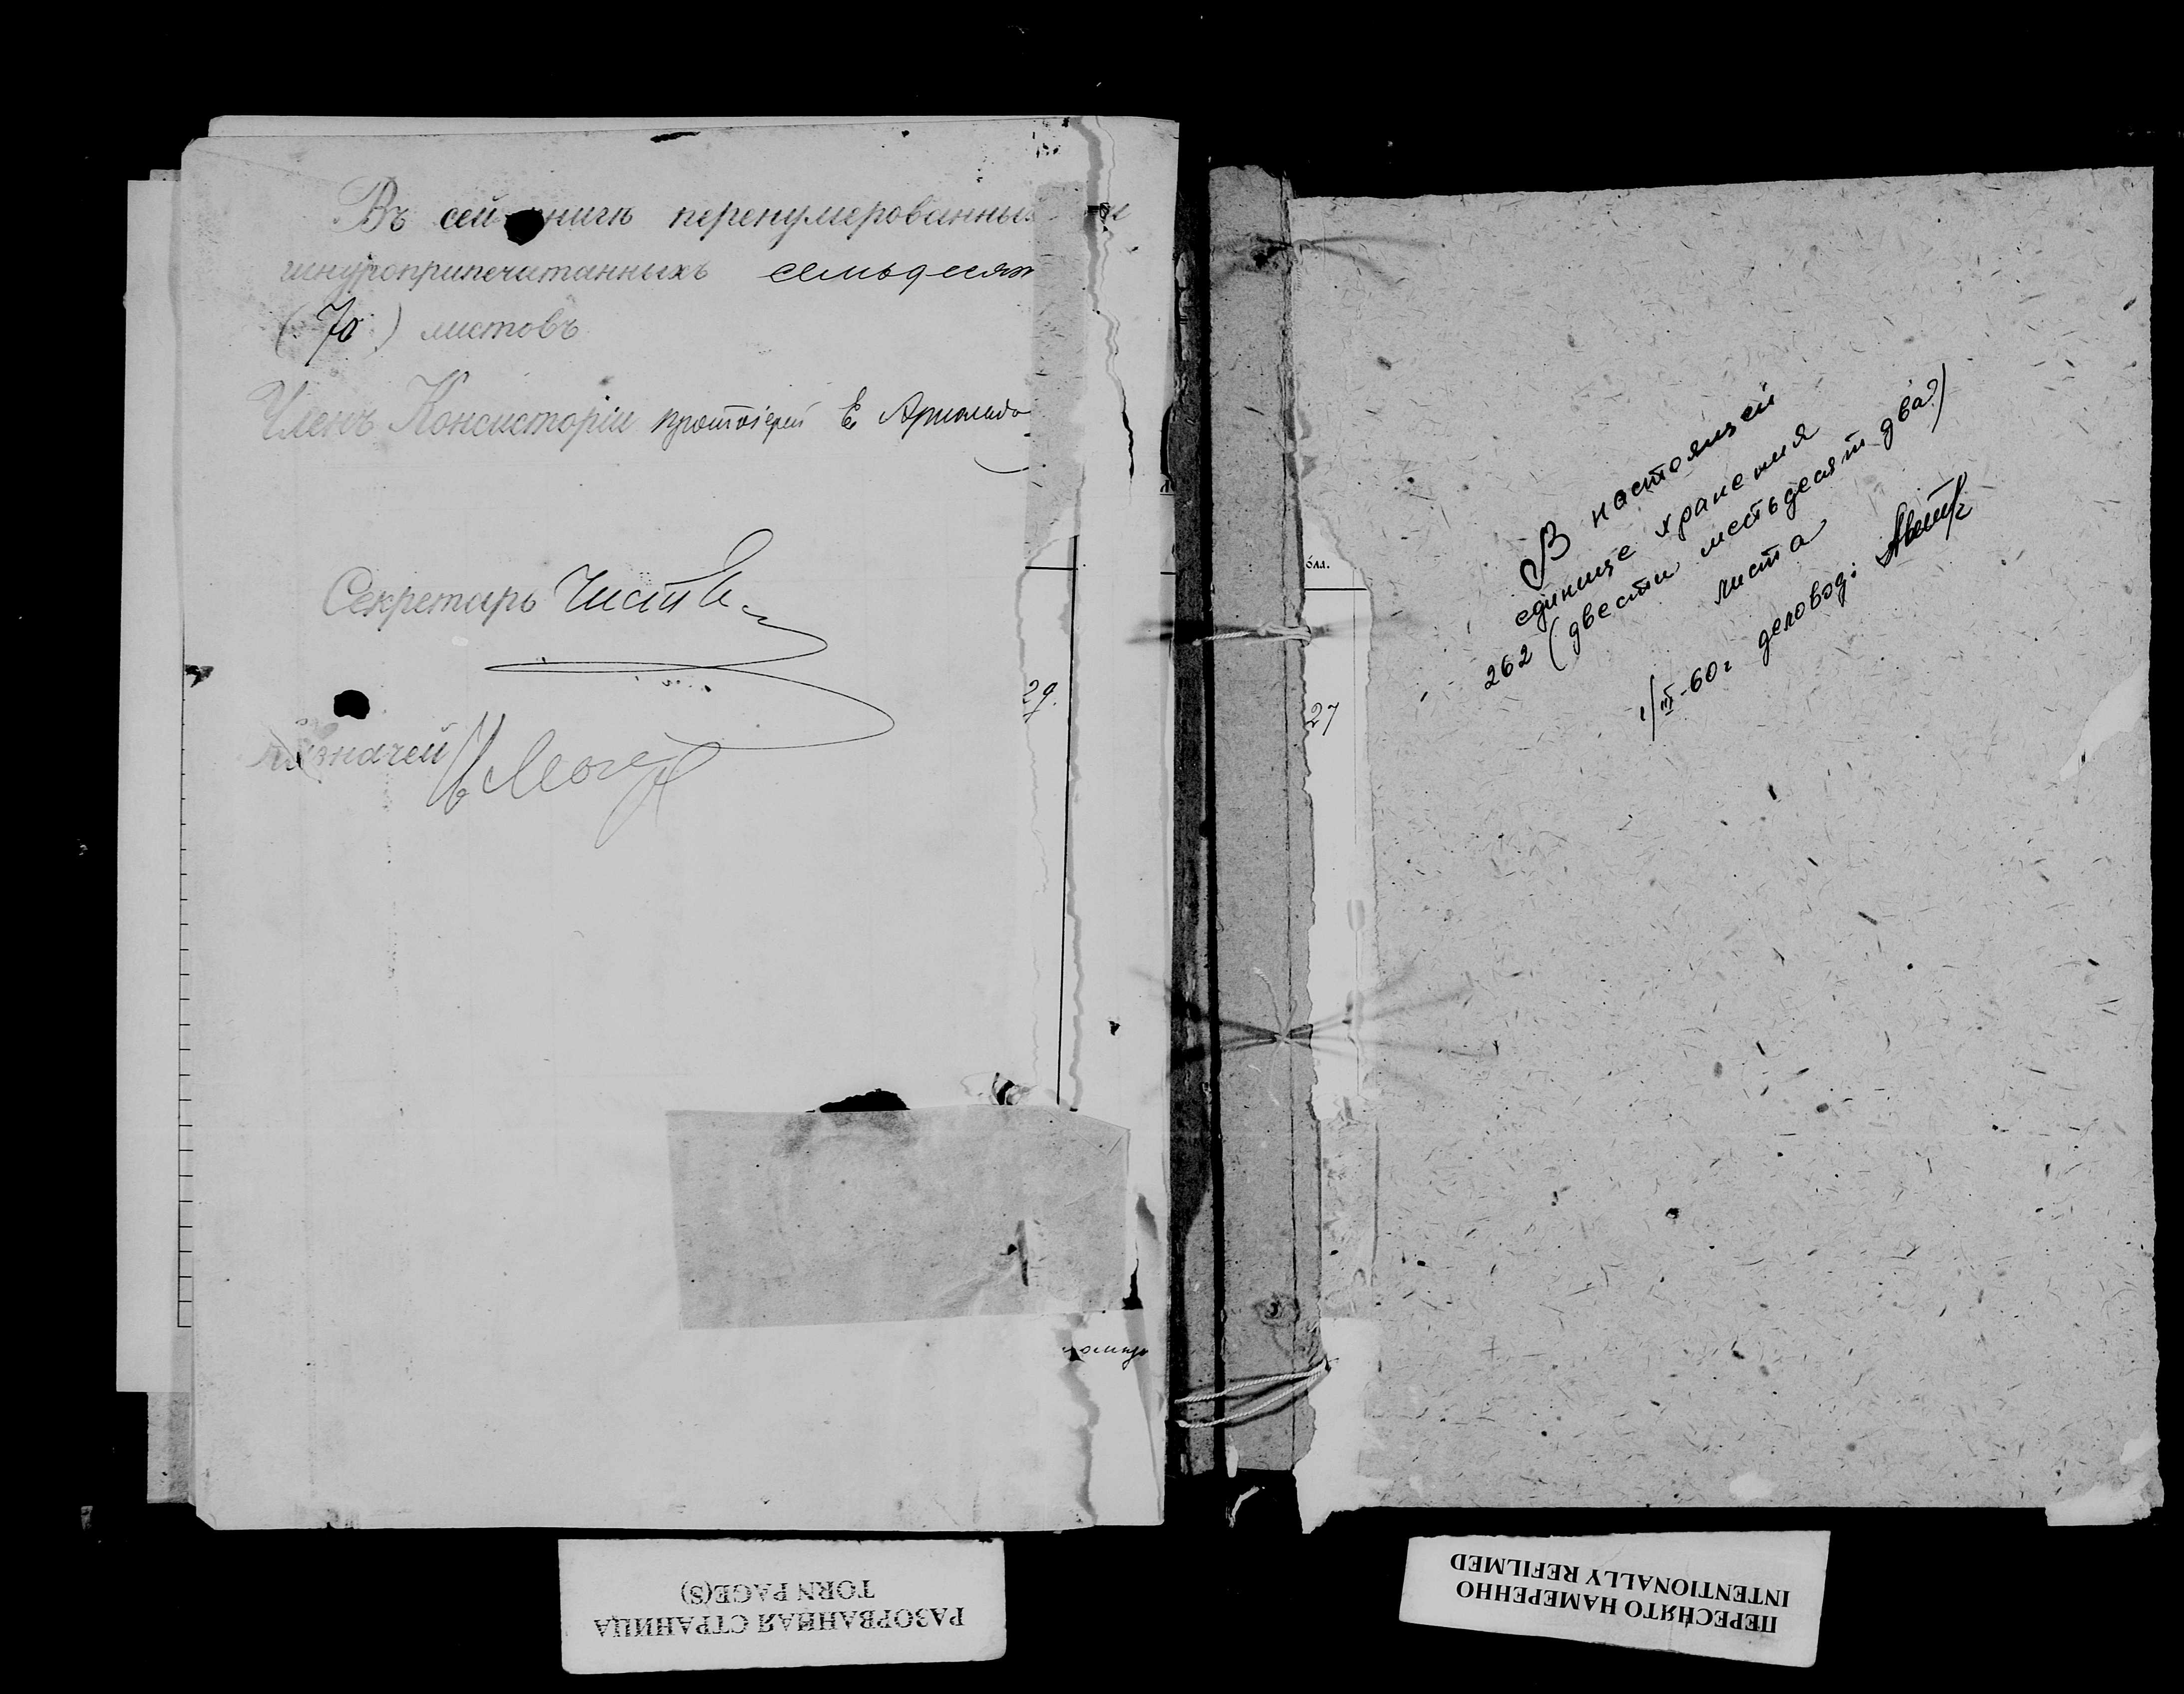 Въ сей книгѣ перенумерованныхъ и
шнуроприпечатанныхъ семьдесят
(70) листовъ
Членъ Консисторіи протоіерей Е.
Секретарь
29.
Казначей
бля.
27
В настоящей
единице хранения
262 (двести шестьдесят два)
листа
1/III-60г деловод:
РАЗОРВАННАЯ СТРАНИЦА
TORN PAGE(S)
ПЕРЕСНЯТО НАМЕРЕННО
INTENTIONALLY REFILMED